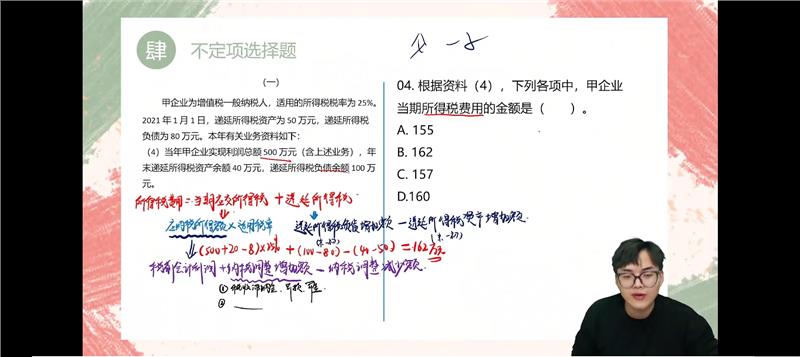 肆 不定项选择题
（一）
甲企业为增值税一般纳税人，适用的所得税税率为25%。
2021年1月1日，递延所得税资产为50万元，递延所得税
负债为80万元。本年有关业务资料如下：
（4）当年甲企业实现利润总额500万元（含上述业务），年
末递延所得税资产余额40万元，递延所得税负债余额100万
元。
所得税费用=当期应交所得税+递延所得税
应纳税所得额×适用税率
递延所得税负债增加额-递延所得税资产增加额
(500+20-8)×25%+(100-80)-(40-50)=162万元
税前会计利润+纳税调整增加额-纳税调整减少额
①税收滞纳金、
②
04. 根据资料（4），下列各项中，甲企业
当期所得税费用的金额是（ ）。
A. 155
B. 162
C. 157
D.160